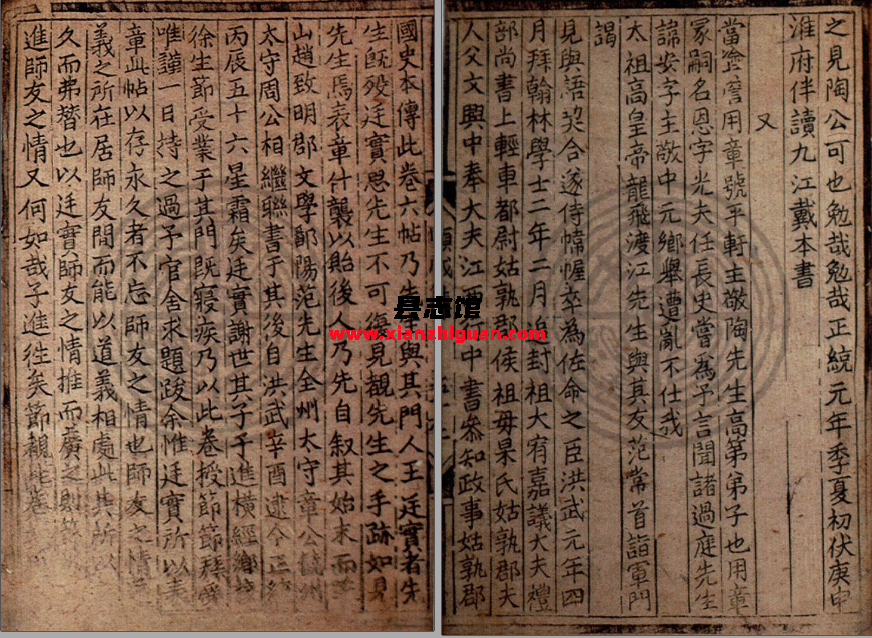 之見陶公可也勉哉勉哉正統元年季夏初伏庚申
淮府伴讀九江戴本書
又
當塗詹用章號平軒主敬陶先生高第弟子也用章
冡嗣名恩字光夫任長史嘗為予言聞諸過庭先生
諱安字主敬中元鄉舉遭亂不仕我
太祖高皇帝龍飛渡江先生與其友范常首詣軍門
謁
見與語契合遂侍幃幄卒為佐命之臣洪武元年四
月拜翰林學士二年二月 封祖大宥嘉議大夫禮
部尚書上輕車都尉姑孰郡侯祖毋杲氏姑孰郡夫
人父文興中奉大夫江西 中書參知政事姑孰郡
國史本傳此卷六帖乃先 與其門人王廷實者先
生既歿廷實思先生不可復見觀先生之手跡如見
先生焉表章什襲以貽後人乃先自叙其始末而
山趙致明郡文學鄱陽范先生全州太守章公
太守周公相繼聯書于其後自洪武辛酉逮今正統
丙辰五十六星霜矣廷實謝世其子子進橫經鄉
徐生節受業于其門既寢疾乃以此卷授節節拜
唯謹一日持之過予官舍求題跋余惟廷實所以表
章此帖以存永久者不忘師友之情也師友之情
義之所在居師友間而能以道義相處此其所以
久而弗替也以廷實師友之情推而廣之則
進師友之情又何如哉子進徃矣節觀此卷
县志馆
www.xianzhiguan.com